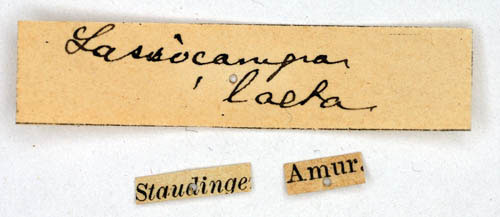 Lassiocampa
laeta
Staudinge
Amur.